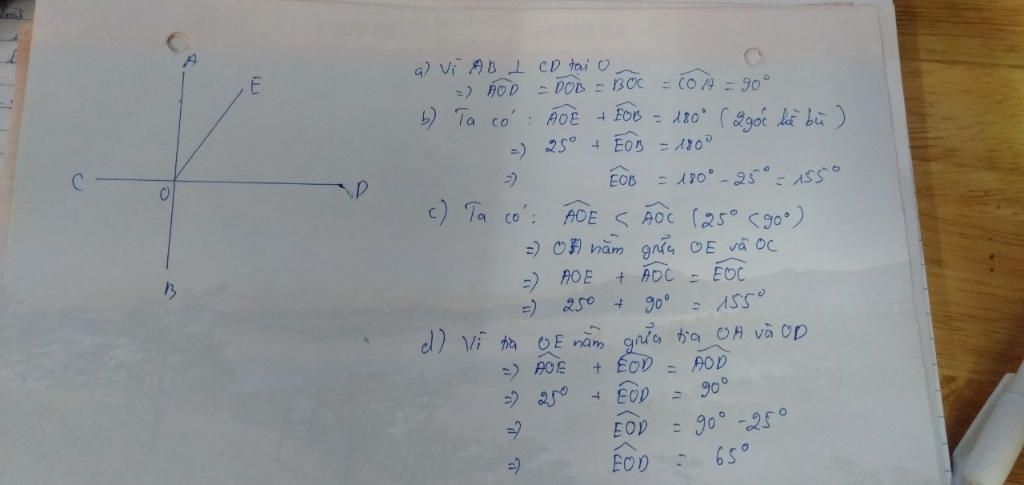 A
E
C
O
D
B
a) Vì AB ⊥ CD tại O
=) AOD = DOB = BOC = COA = 90°
b) Ta có : AOE + EOB = 180° ( 2 góc kề bù )
=) 25° + EOB = 180°
=) EOB = 180° - 25° = 155°
c) Ta có : AOE < AOC ( 25° < 90° )
=) OA nằm giữa OE và OC
=) AOE + AOC = EOC
=) 25° + 90° = 155°
d) Vì tia OE nằm giữa tia OA và OD
=) AOE + EOD = AOD
=) 25° + EOD = 90°
=) EOD = 90° - 25°
=) EOD = 65°